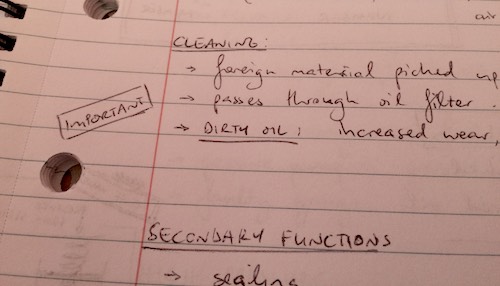 air
CLEANING:
→ foreign material picked up
→ passes through oil filter.
IMPORTANT
→ DIRTY OIL: increased wear,
SECONDARY FUNCTIONS
→ sealing